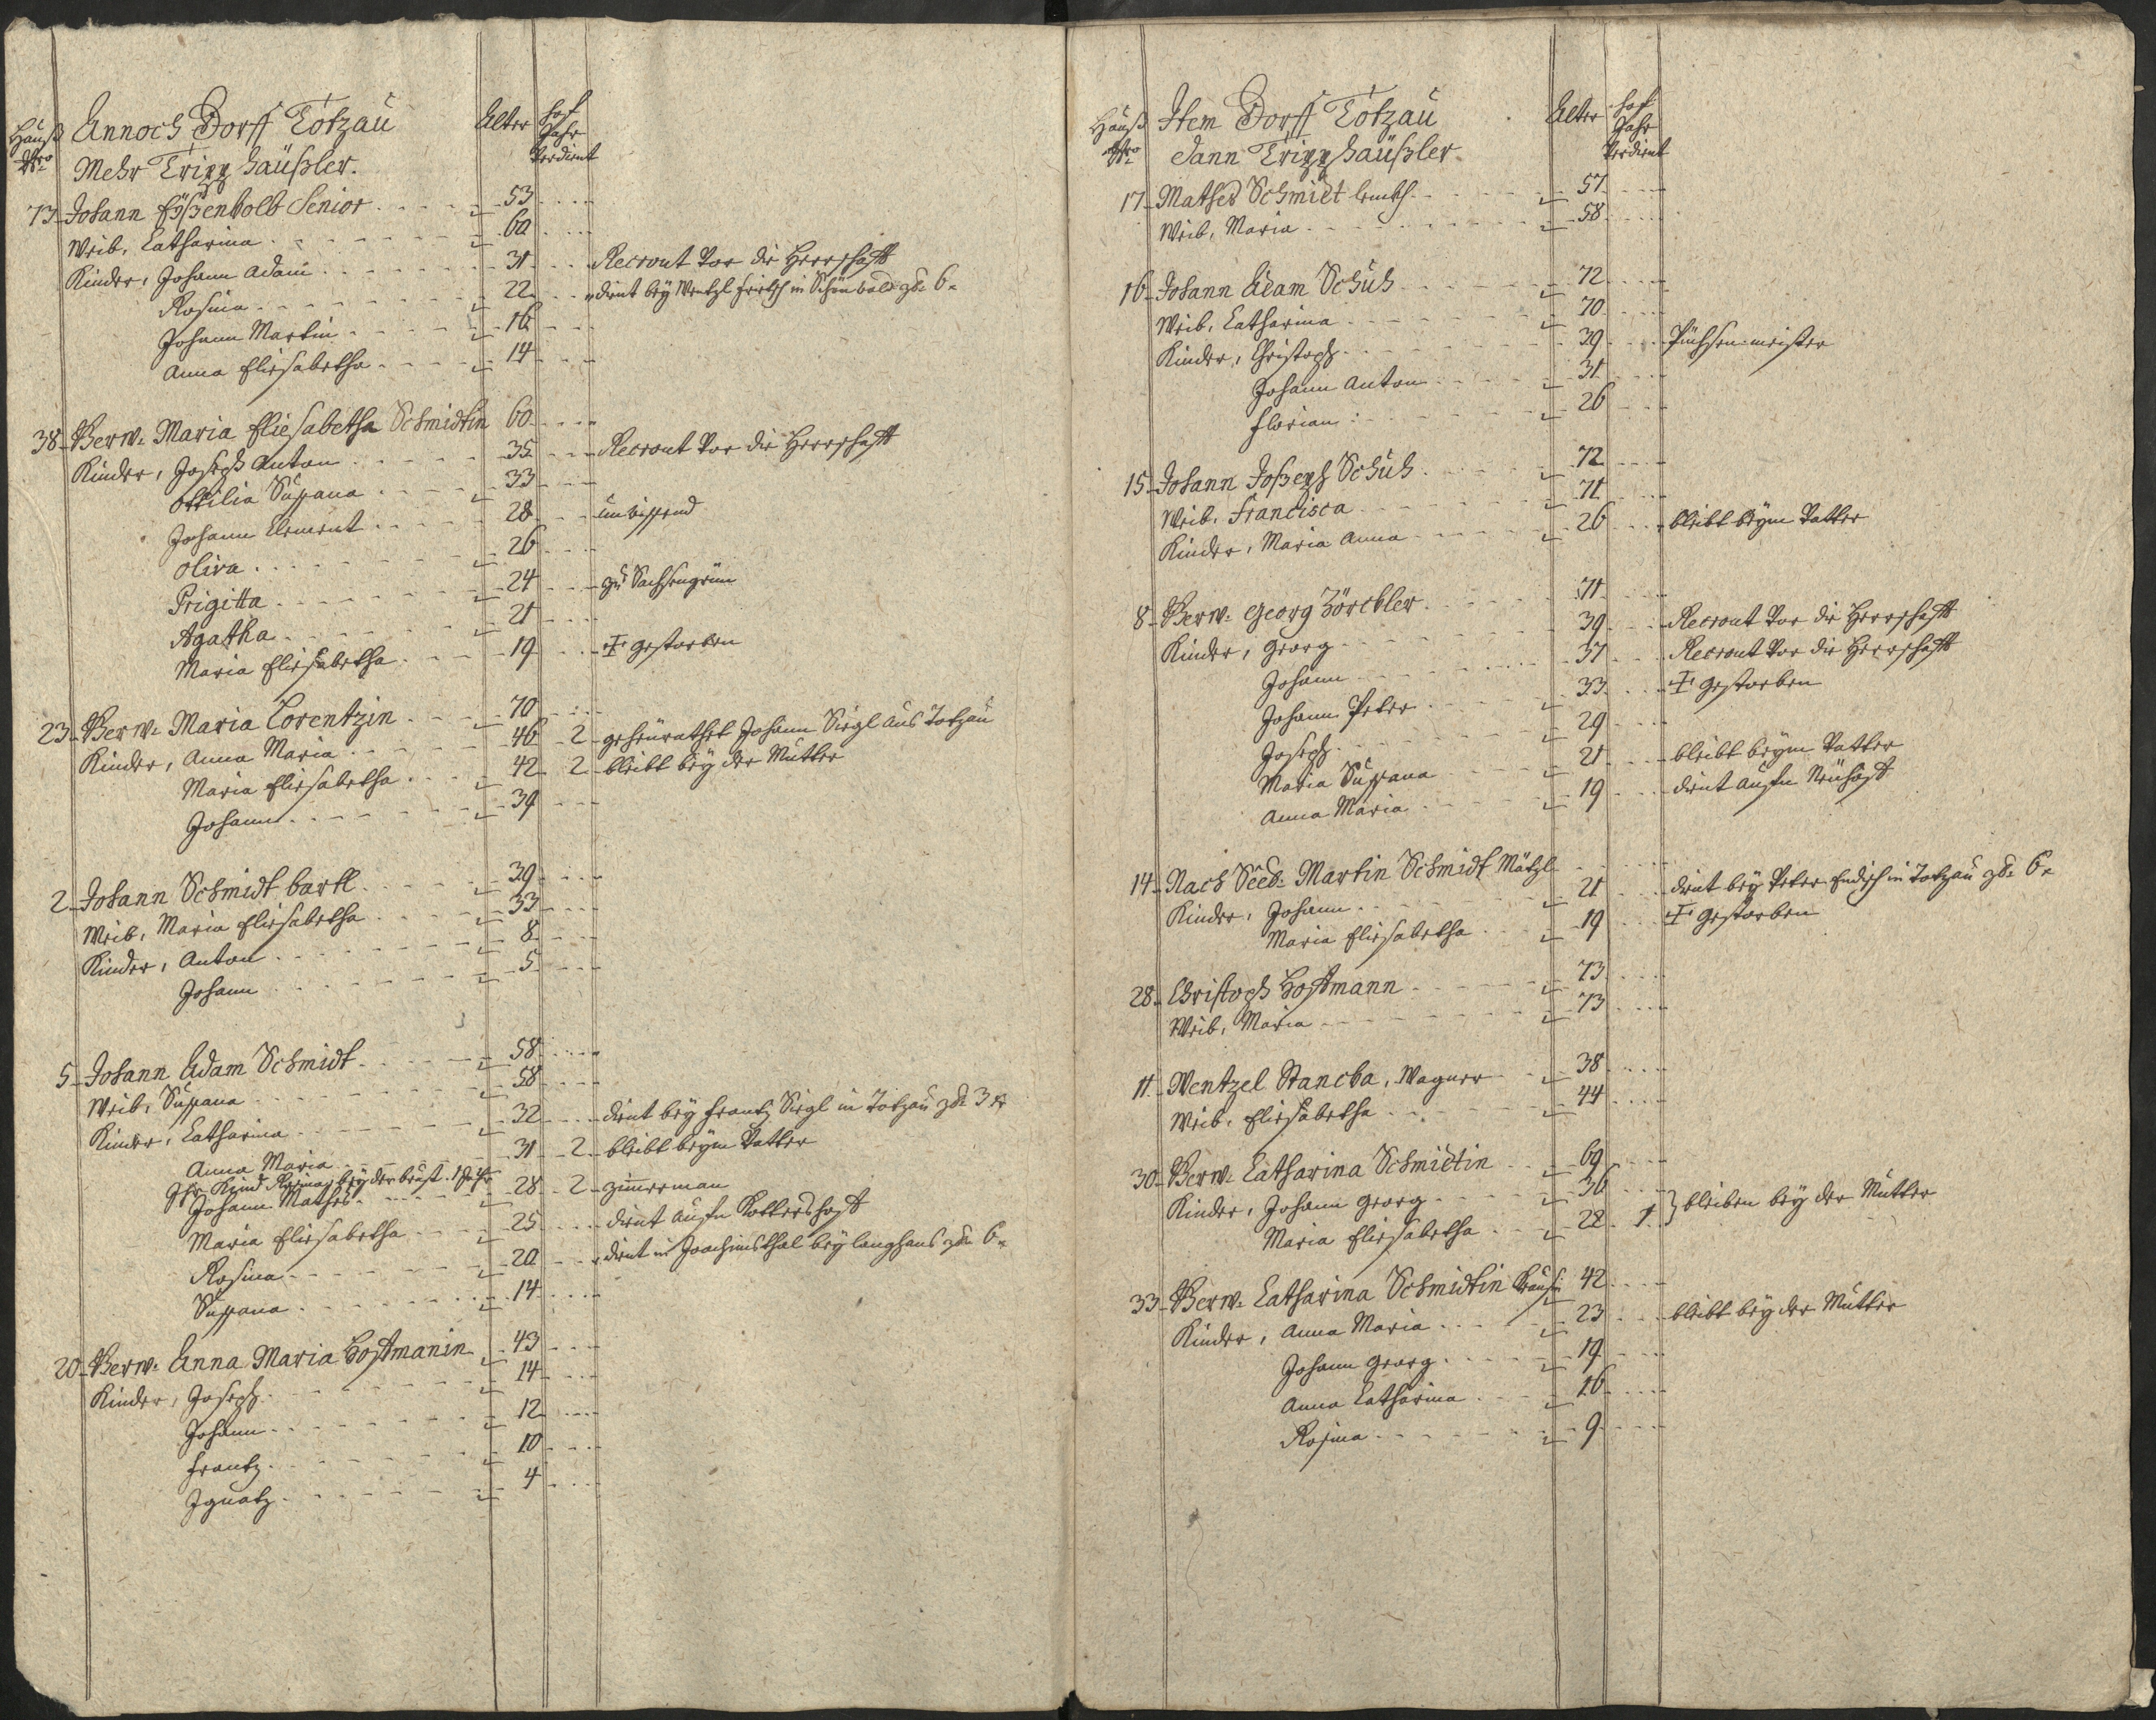 Hauß Nro
Annoch Dorff Totzau
Alter
Hof Jahr Verdient
Mehr Tripp häußler.
13 Johann Eißenkolb Senior 53
Weib, Catharina 60
Kinder, Johann Adam 31 Recrout Vor die Herrschafft
Rosina 22 dient bey Wentzl in Schönwald p 6
Johann Martin 16
Anna Eliesabetha 14
38 Verw. Maria Eliesabetha Schmidtin 60
Kinder, Joseph Anton 35 Recrout Vor die Herrschafft
Ottilia Susana 33
Johann Clement 28 unwissend
Oliva 26
Prigitta 24 zu Sachsengrün
Agatha 21
Maria Eliesabetha 19 gestorben
23 Verw. Maria Lorentzin 70
Kinder, Anna Maria 46 2 geheurathet Johann Siegl aus Totzau
Maria Eliesabetha 42 2 bleibt bey der Mutter
Johann 39
2 Johann Schmidt bartl 39
Weib, Maria Eliesabetha 33
Kinder, Anton 8
Johann 5
5 Johann Adam Schmidt 58
Weib, Susana 58
Kinder, Catharina 32 dient bey Frantz Siegl in Totzau p 3
Anna Maria 31 2 bleibt beym Vatter
Ihr Kind Rosina bey der brust 1 Jahr
Johann Mathes 28 2 zimmerman
Maria Eliesabetha 25 dient aufn
Rosina 20 dient in Joachimsthal bey langhans p 6
Susana 14
20 Verw. Anna Maria Hoffmanin 43
Kinder, Joseph 14
Johann 12
Frantz 10
Ignatz 4
Hauß Nro
Item Dorff Totzau
Alter
Hof Jahr Verdient
dann Tripp häußler.
17 Mathes Schmidt 57
Weib, Maria 58
16 Johann Adam Schuh 72
Weib, Catharina 70
Kinder, Christoph 39 Püchsenmeister
Johann Anton 31
Florian 26
15 Johann Joseph Schuh 72
Weib, Francisca 71
Kinder, Maria Anna 26 bleibt beym Vatter
8 Verw. Georg Zörckler 71
Kinder, Georg 39 Recrout Vor die Herrschafft
Johann 37 Recrout Vor die Herrschafft
Johann Peter 33 gestorben
Joseph 29
Maria Susana 21 bleibt beym Vatter
Anna Maria 19 dient aufn Neuhoff
14 Nach Seel. Martin Schmidt Mätzl
Kinder, Johann 21 dient bey Peter Endisch in Totzau p 6
Maria Eliesabetha 19 gestorben
28 Christoph Hoffmann 73
Weib, Maria 73
11 Wentzel Stancka, Wagner 38
Weib, Eliesabetha 44
30 Verw. Catharina Schmidtin 69
Kinder, Johann Georg 36
Maria Eliesabetha 28 1 bleiben bey der Mutter
33 Verw. Catharina Schmidtin 42
Kinder, Anna Maria 23 bleibt bey der Mutter
Johann Georg 19
Anna Catharina 16
Rosina 9